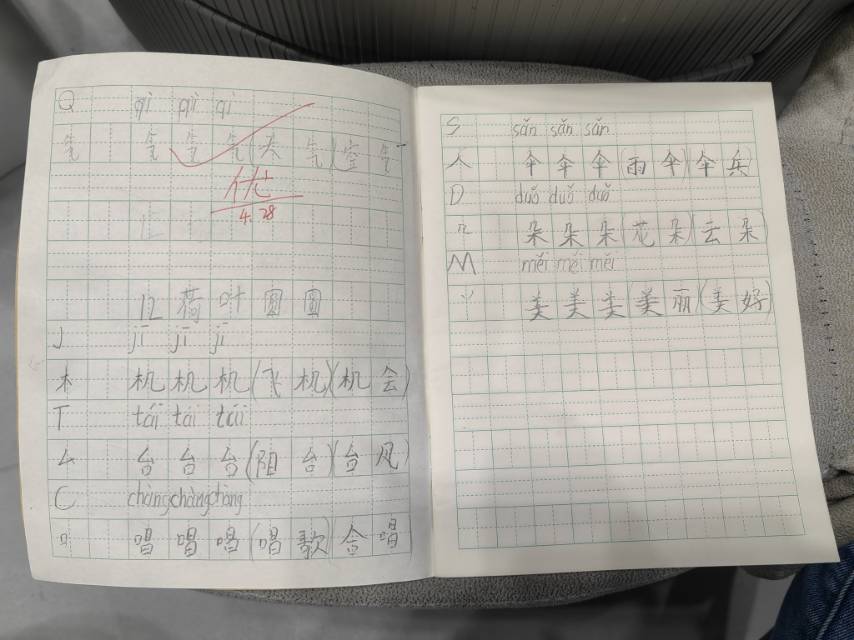 Q qì qì qì
气 气 气 气(天 气)(空 气)
优
4.28
12 荷 叶 圆 圆
J jī jī jī
木 机 机 机(飞 机)(机 会)
T tái tái tái
厶 台 台 台(阳 台)(台 风)
C chàng chàng chàng
口 唱 唱 唱(唱 歌)合 唱
S sǎn sǎn sǎn
人 伞 伞 伞(雨 伞)(伞 兵)
D duǒ duǒ duǒ
朵 朵 朵(花 朵)(云 朵)
M měi měi měi
丷 美 美 美(美 丽)(美 好)